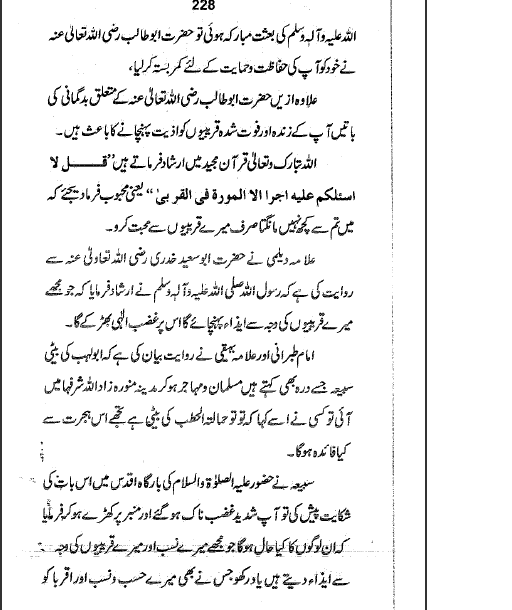 228
اللہ علیہ وآلہ وسلم کی بعثت مبارکہ ہوئی تو حضرت ابو طالب رضی اللہ تعالیٰ عنہ
نے خود کو آپ کی حفاظت وحمایت کے لئے کمر بستہ کر لیا،
علاوہ ازیں حضرت ابو طالب رضی اللہ تعالیٰ عنہ کے متعلق بدگمانی کی
باتیں آپ کے زندہ اور فوت شدہ قریبیوں کو اذیت پہنچانے کا باعث ہیں۔
اللہ تبارک وتعالیٰ قرآن مجید میں ارشاد فرماتے ہیں ”قل لا
اسئلکم علیه اجرا الا المورة فی القربیٰ“ یعنی محبوب فرما دیجئے کہ
میں تم سے کچھ نہیں مانگتا صرف میرے قریبیوں سے محبت کرو۔
علامہ دیلمی نے حضرت ابو سعید خدری رضی اللہ تعاولیٰ عنہ سے
روایت کی ہے کہ رسول اللہ صلی اللہ علیہ وآلہ وسلم نے ارشاد فرمایا کہ جو مجھے
میرے قریبیوں کی وجہ سے ایذاء پہنچائے گا اس پر غضب الٰہی بھڑکے گا۔
امام طبرانی اور علامہ بیہقی نے روایت بیان کی ہے کہ ابولہب کی بیٹی
سبیعہ جسے درہ بھی کہتے ہیں مسلمان ومہاجر ہو کر مدینہ منورہ زاد اللہ شرفہا میں
آئی تو کسی نے اسے کہا کہ تو تو حمالتہ الحطب کی بیٹی ہے تجھے اس ہجرت سے
کیا فائدہ ہوگا۔
سبیعہ نے حضور علیہ الصلوٰۃ والسلام کی بارگاہ اقدس میں اس بات کی
شکایت پیش کی تو آپ شدید غضب ناک ہو گئے اور منبر پر کھڑے ہو کر فرمایا
کہ ان لوگوں کا کیا حال ہوگا جو مجھے میرے نسب اور میرے قریبیوں کی وجہ
سے ایذاء دیتے ہیں یاد رکھو جس نے بھی میرے حسب ونسب اور اقربا کو